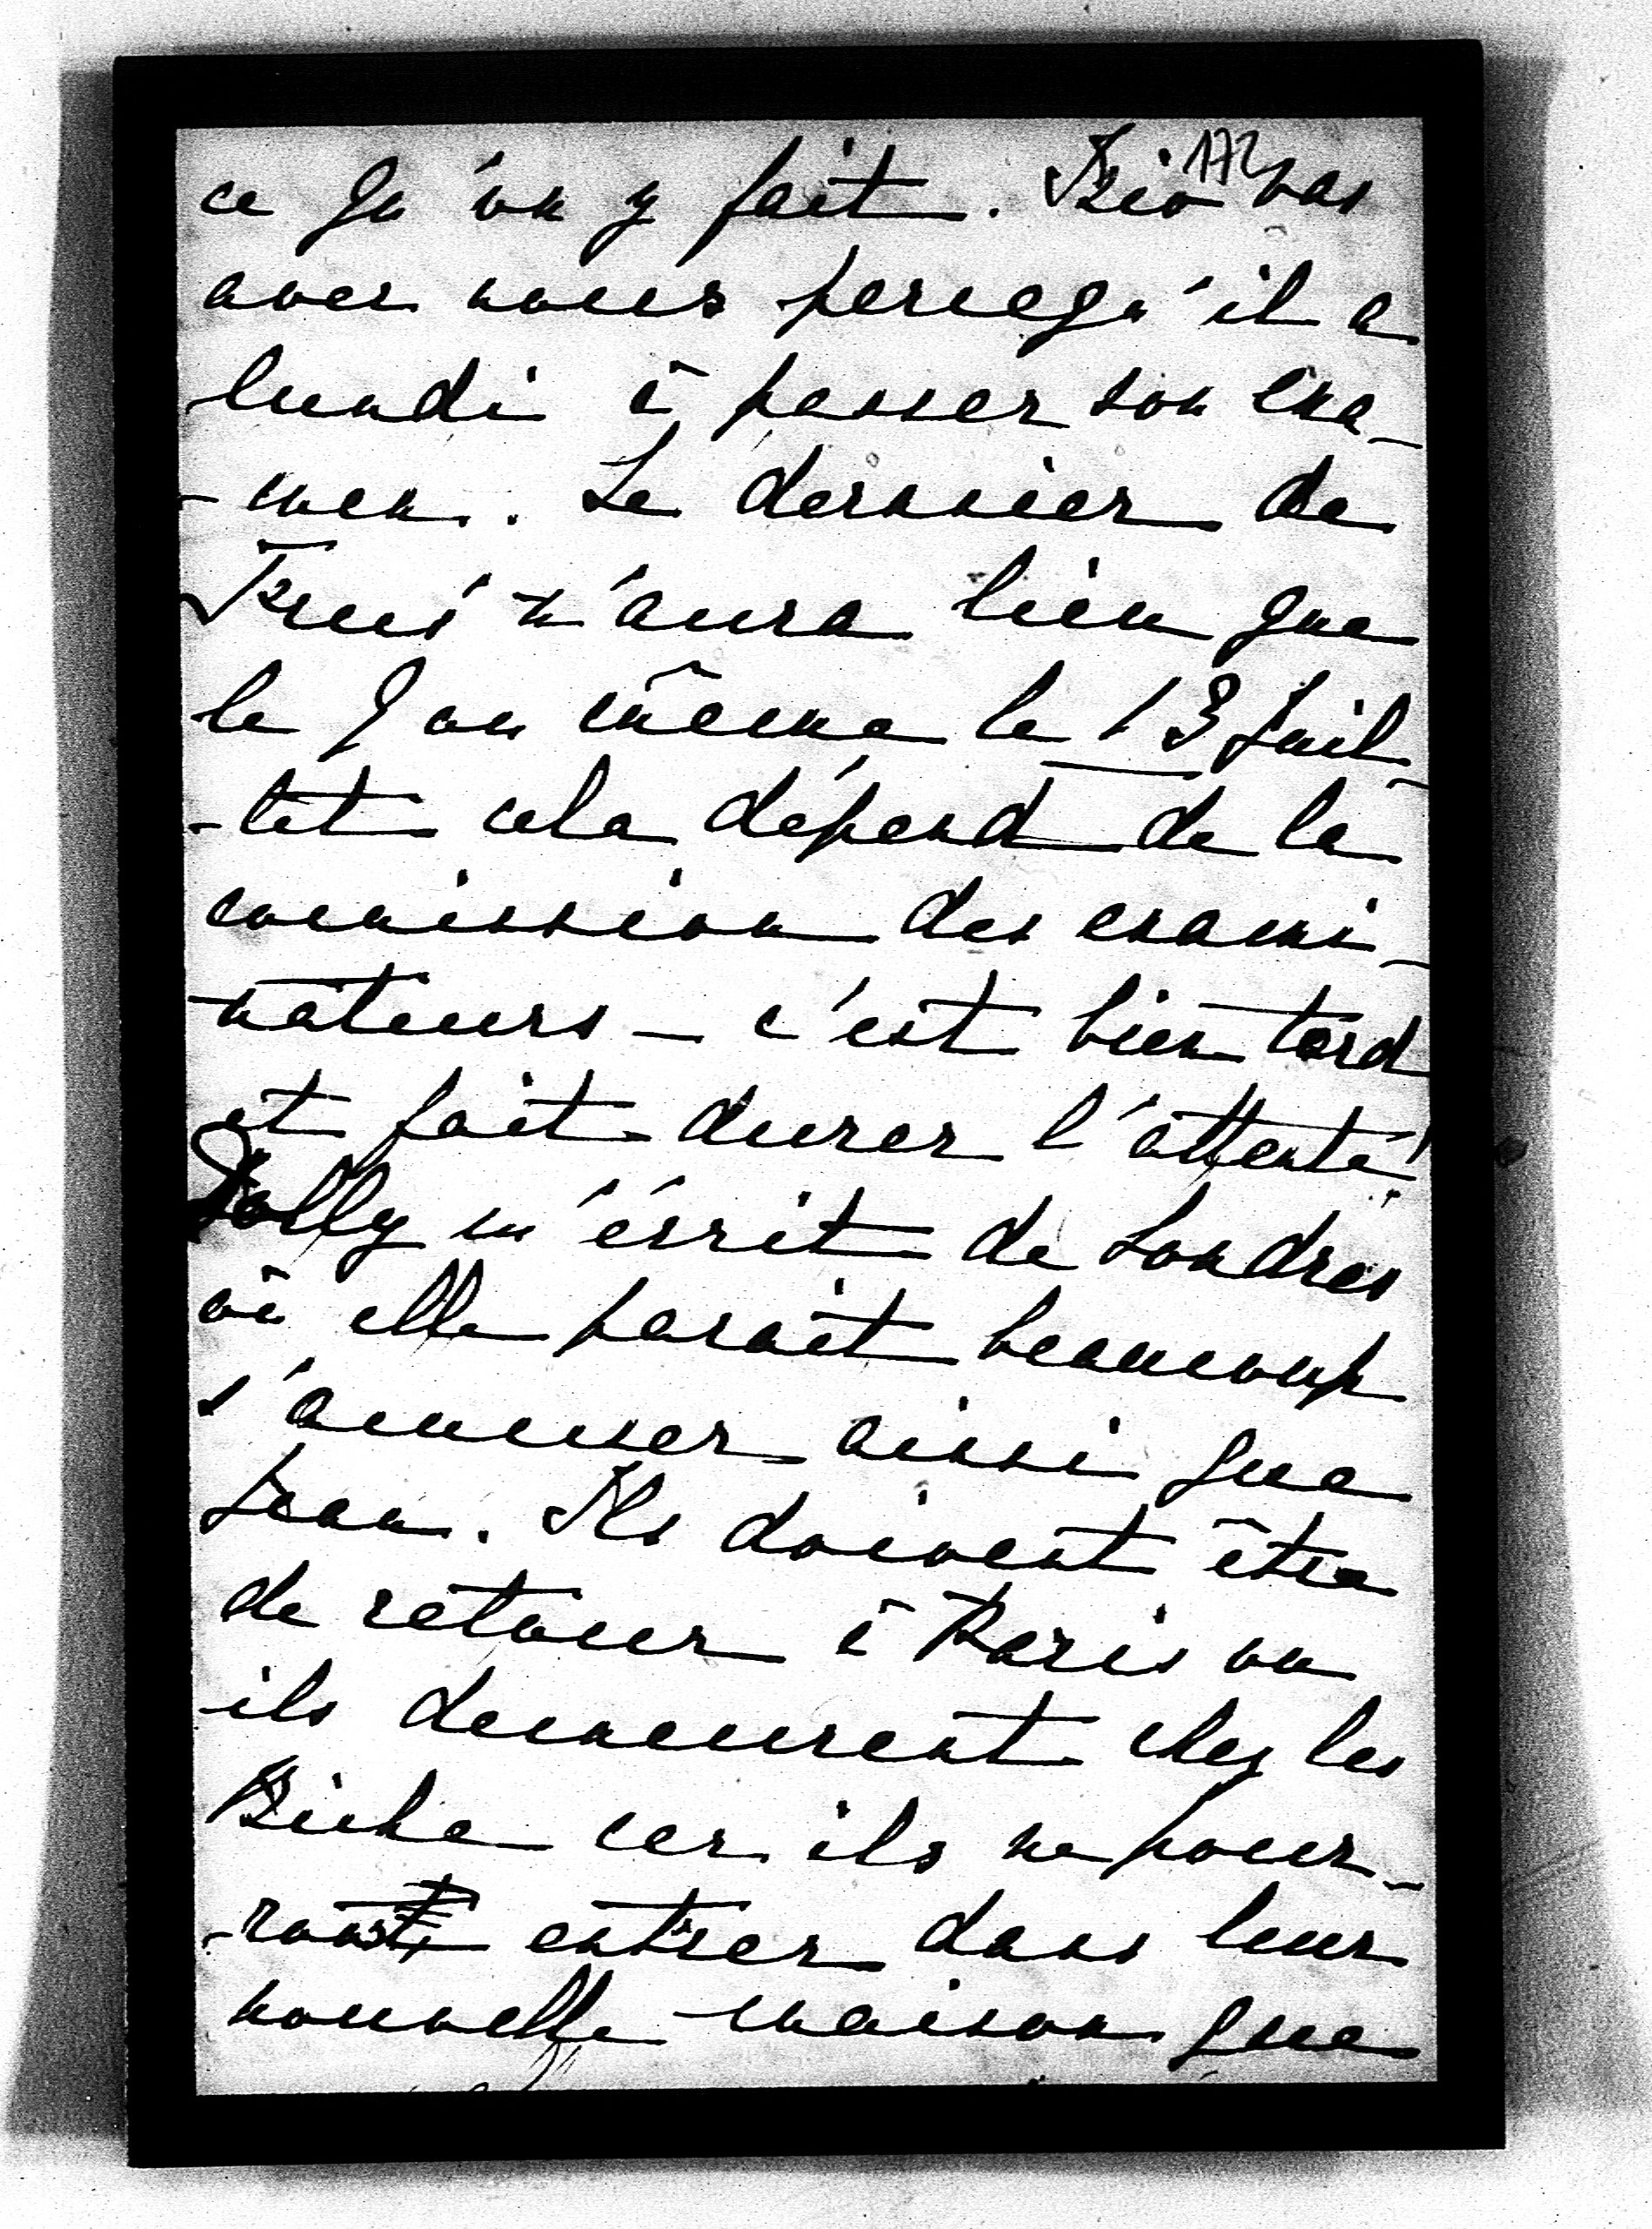 172
ce qu'on y fait. Bio vas
avec nous parcequ'il a
lundi à passer son exa-
-men. Le dernier de
n'aura lieu que
le 9 ou même le 13 Juil-
-let cela dépend de la
comission des exami-
nateurs – c'est bien tard
et fait durer l'attente!
Dolly m'écrit de Londres
où elle parait beaucoup
s'amuser ainsi que
Jean. Ils doivent être
de retour à Paris ou
ils demeurent chez les
car ils ne pour-
-ront entrer dans leur
nouvelle maison que